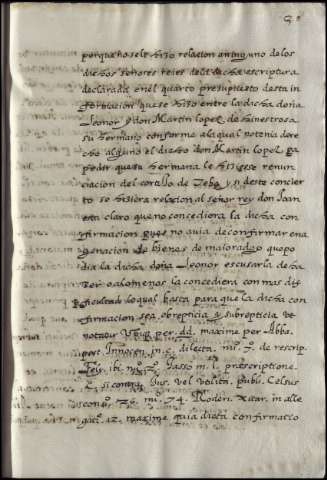 porque no se le hizo relacion a ninguno de los
dichos señores reies de la dicha escriptura
declarada en el quarto presupuesto desta in
formacion que se hizo entre la dicha doña
Leonor y don Martin lopez de hinestrosa
su hermano conforme a la qual no tenia dere
cho alguno el dicho don Martin lopez pa
pedir que su hermana le hiziese renun
ciacion del cortijo de y si deste concier
to se hiziera relacion al señor rey don Joan
esta claro que no concediera la dicha con
firmacion pues no auia de confirmar ena
genacion de bienes de maiorazgo que po
dia la dicha doña Leonor escusarla de ha
zer o a lo menos la concediera con mas dif
ficultad lo qual basta para que la dicha con
firmacion sea obreptitia y subreptitia
per dd. maxime per Abb.
post Innocen. in c. dilecta. nu. 7. de rescrip.
ibi nu. Jasso in l. praescriptione.
si Jus. vel vtilit. publi. Celsus
cons. 76. nu. 74. Roderi. xuar. in alle
gat. 12. maxime quia dicta confirmatio